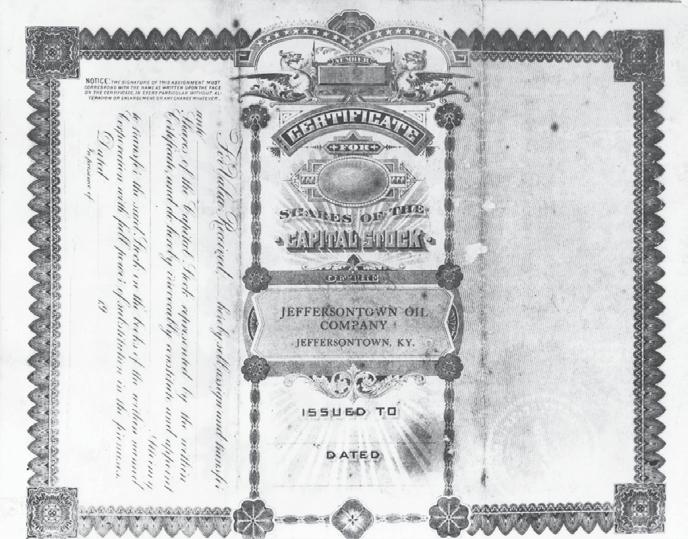 NOTICE: THE SIGNATURE OF THIS ASSIGNMENT MUST
CORRESPOND WITH THE NAME AS WRITTEN UPON THE FACE
OF THE CERTIFICATE, IN EVERY PARTICULAR WITHOUT AL-
TERATION OR ENLARGEMENT OR ANY CHANGE WHATEVER.
For Value Received, hereby sell, assign and transfer
unto
Shares of the Capital Stock represented by the within
Certificate, and do hereby irrevocably constitute and appoint
Attorney
to transfer the said Stock on the books of the within named
Corporation with full power of substitution in the premises.
Dated 19
In presence of
NUMBER
CERTIFICATE
FOR
SHARES OF THE
CAPITAL STOCK
OF THE
JEFFERSONTOWN OIL
COMPANY
JEFFERSONTOWN, KY.
ISSUED TO
DATED